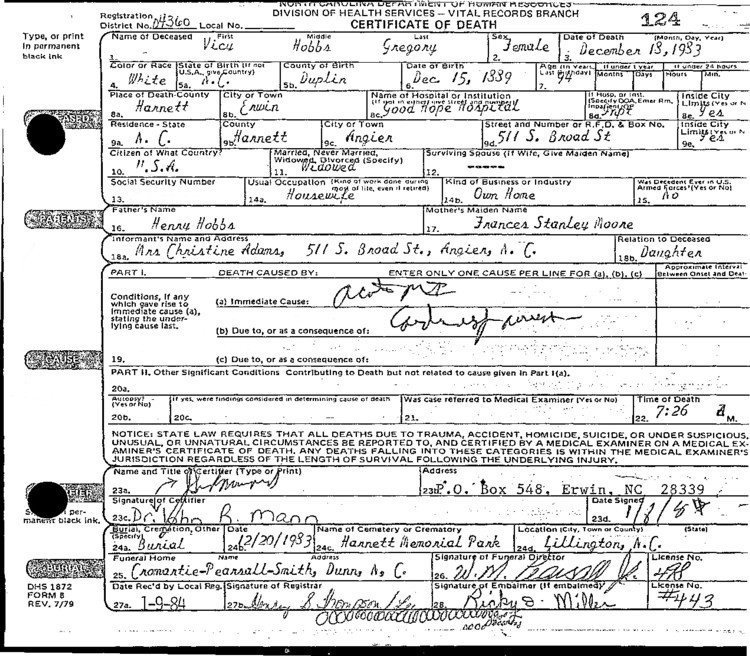 NORTH CAROLINA DEPARTMENT OF HUMAN RESOURCES
DIVISION OF HEALTH SERVICES – VITAL RECORDS BRANCH
CERTIFICATE OF DEATH
124
Registration District No. 04360 Local No.
Type, or print in permanent black ink
Name of Deceased First Middle Last
1. Hobbs Gregory
Sex
2. Female
Date of Death (Month, Day, Year)
3. December 18, 1983
Color or Race
4. White
State of Birth (If not U.S.A., give Country)
5a. N.C.
County of Birth
5b. Duplin
Date of Birth
6. Dec. 15, 1889
Age (In years Last Birthday)
7. 94
If under 1 year
Months Days
If under 24 hours
Hours Min.
Place of Death-County
8a. Harnett
City or Town
8b. Erwin
Name of Hospital or Institution
(If not in either, give street and number)
8c. Good Hope Hospital
If Hosp. or Inst. (Specify DOA, Emer Rm, Inpatient, OP
8d. Inpt
Inside City Limits (Yes or N
8e. Yes
Residence - State
9a. N. C.
County
9b. Harnett
City or Town
9c. Angier
Street and Number or R.F.D. & Box No.
9d. 511 S. Broad St
Inside City Limits (Yes or N
9e. Yes
Citizen of What Country?
10. U.S.A.
Married, Never Married, Widowed, Divorced (Specify)
11. Widowed
Surviving Spouse (If Wife, Give Maiden Name)
12. -----
Social Security Number
13.
Usual Occupation (Kind of work done during most of life, even if retired)
14a. Housewife
Kind of Business or Industry
14b. Own Home
Was Decedent Ever in U.S. Armed Forces? (Yes or No)
15. No
PARENTS
Father's Name
16. Henry Hobbs
Mother's Maiden Name
17. Frances Stanley Moore
Informant's Name and Address
18a. Mrs Christine Adams, 511 S. Broad St., Angier, N. C.
Relation to Deceased
18b. Daughter
PART I. DEATH CAUSED BY: ENTER ONLY ONE CAUSE PER LINE FOR (a), (b), (c)
Approximate Interval Between Onset and Deat
Conditions, if any which gave rise to immediate cause (a), stating the underlying cause last.
(a) Immediate Cause: Acute MI
(b) Due to, or as a consequence of: arrest
CAUSE
19. (c) Due to, or as a consequence of:
PART II. Other Significant Conditions Contributing to Death but not related to cause given in Part I(a).
20a.
Autopsy? (Yes or No)
20b.
If yes, were findings considered in determining cause of death
20c.
Was case referred to Medical Examiner (Yes or No)
21.
Time of Death
22. 7:26 M.
NOTICE: STATE LAW REQUIRES THAT ALL DEATHS DUE TO TRAUMA, ACCIDENT, HOMICIDE, SUICIDE, OR UNDER SUSPICIOUS,
UNUSUAL, OR UNNATURAL CIRCUMSTANCES BE REPORTED TO, AND CERTIFIED BY A MEDICAL EXAMINER ON A MEDICAL EX-
AMINER'S CERTIFICATE OF DEATH. ANY DEATHS FALLING INTO THESE CATEGORIES IS WITHIN THE MEDICAL EXAMINER'S
JURISDICTION REGARDLESS OF THE LENGTH OF SURVIVAL FOLLOWING THE UNDERLYING INJURY.
Name and Title of Certifier (Type or Print)
23a.
Address
23b. P.O. Box 548, Erwin, NC 28339
per-
manent black ink.
Signature of Certifier
23c. Dr. John R. Mann
Date Signed
23d.
Burial, Cremation, Other (Specify)
24a. Burial
Date
24b. 12/20/1983
Name of Cemetery or Crematory
24c. Harnett Memorial Park
Location (City, Town or County) (State)
24d. Lillington, N.C.
BURIAL
Funeral Home Name Address
25. Cromartie-Pearsall-Smith, Dunn, N. C.
Signature of Funeral Director
26. W. M. Pearsall Jr.
License No.
498
DHS 1872
FORM 8
REV. 7/79
Date Rec'd by Local Reg.
27a. 1-9-84
Signature of Registrar
27b. Thompson
Signature of Embalmer (If embalmed)
28. Ricky D. Miller
License No.
#443